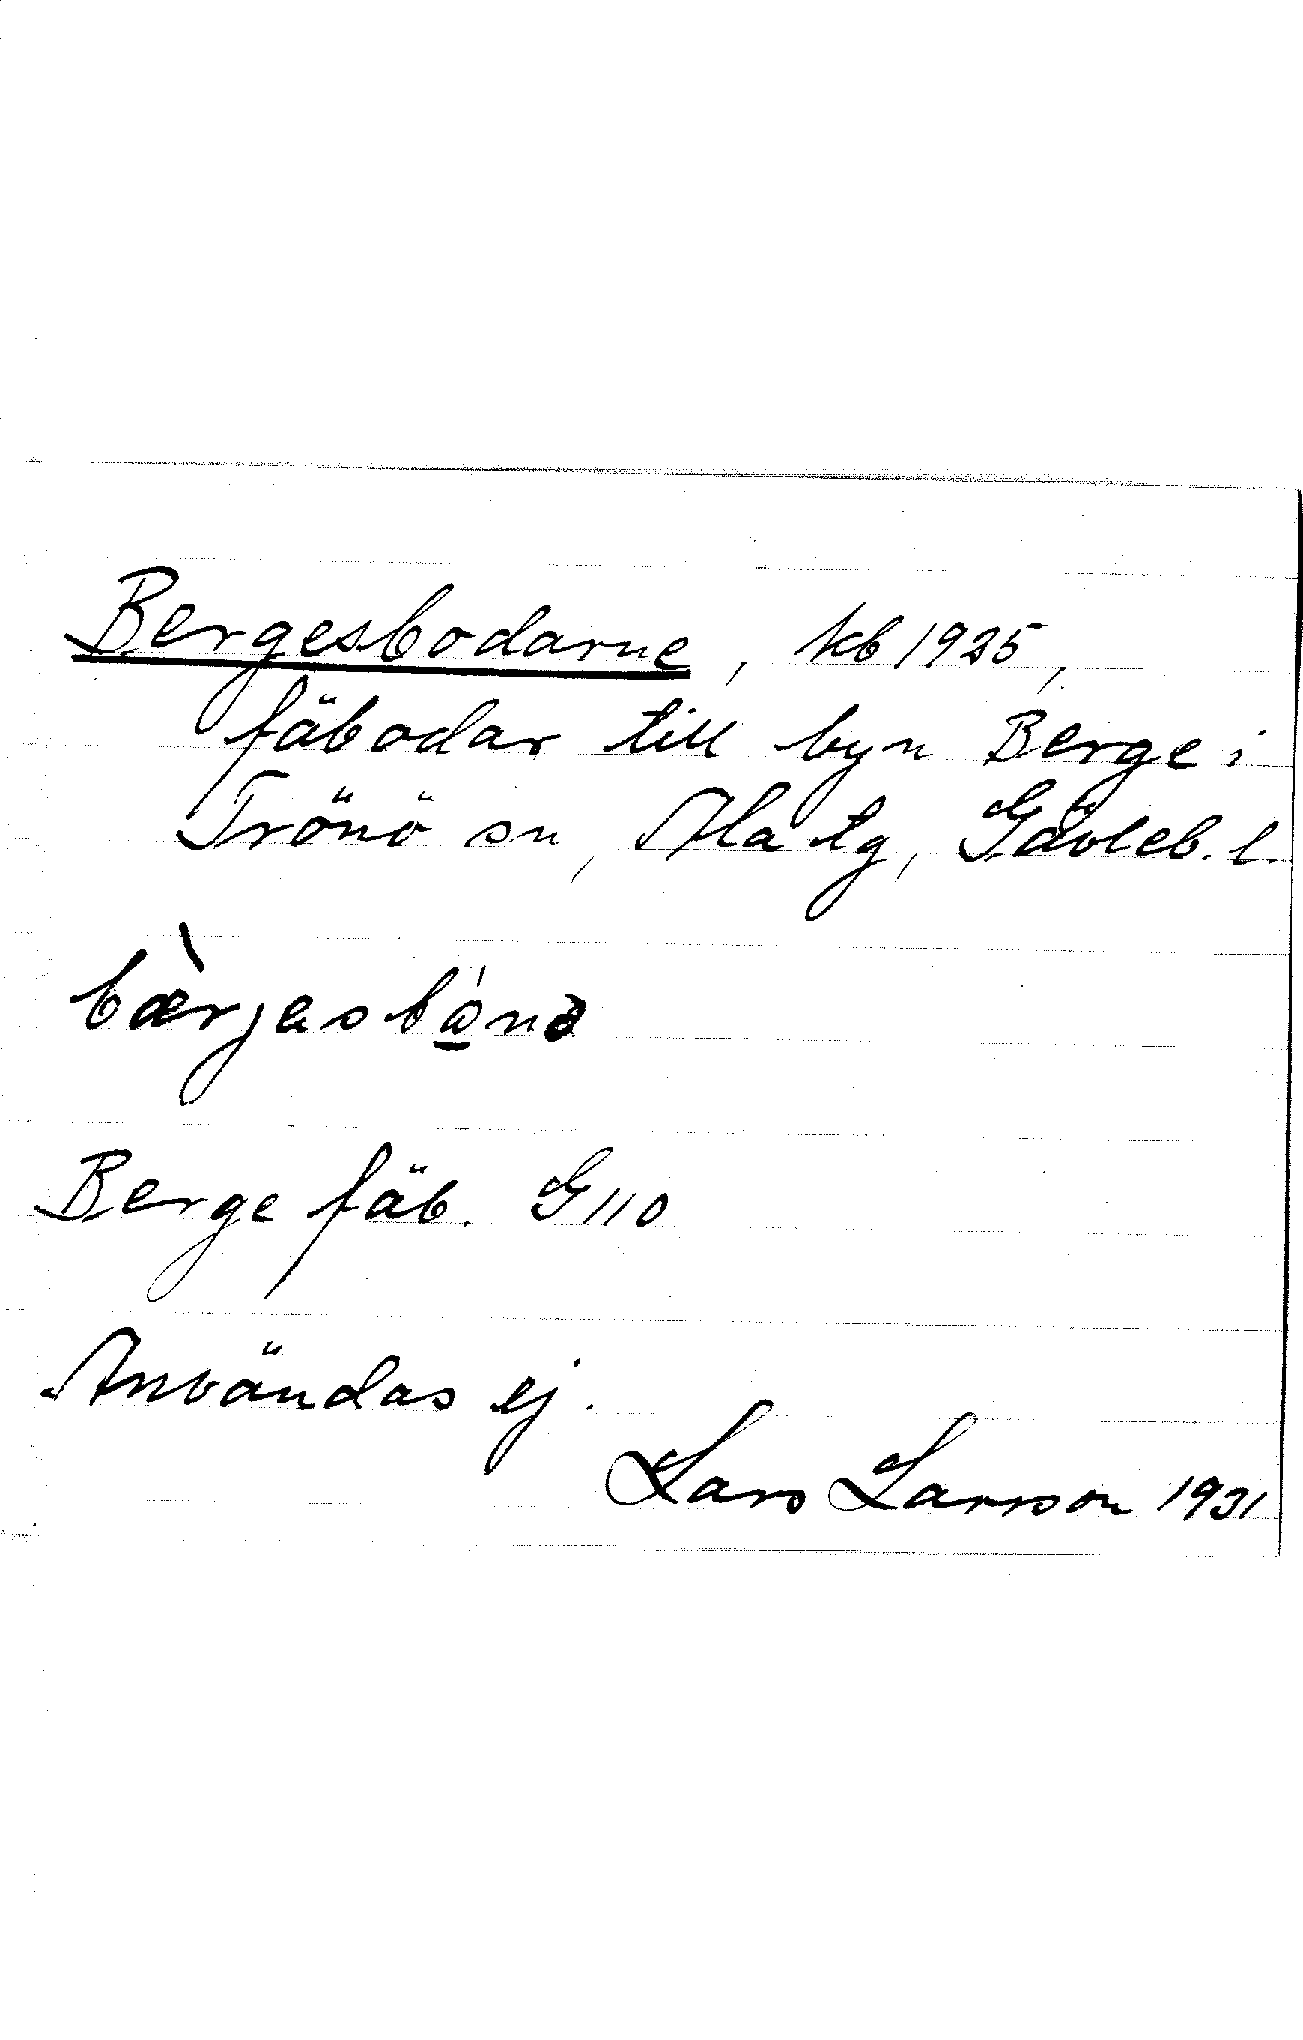 Bergesbodarne, kb 1925,
fäbodar till byn Berge i
Trönö sn, Ala tg, Gävleb. l.
bæ̀rjasbó̱nə
Berge fäb. G110
Användas ej.
Lars Larsson 1931